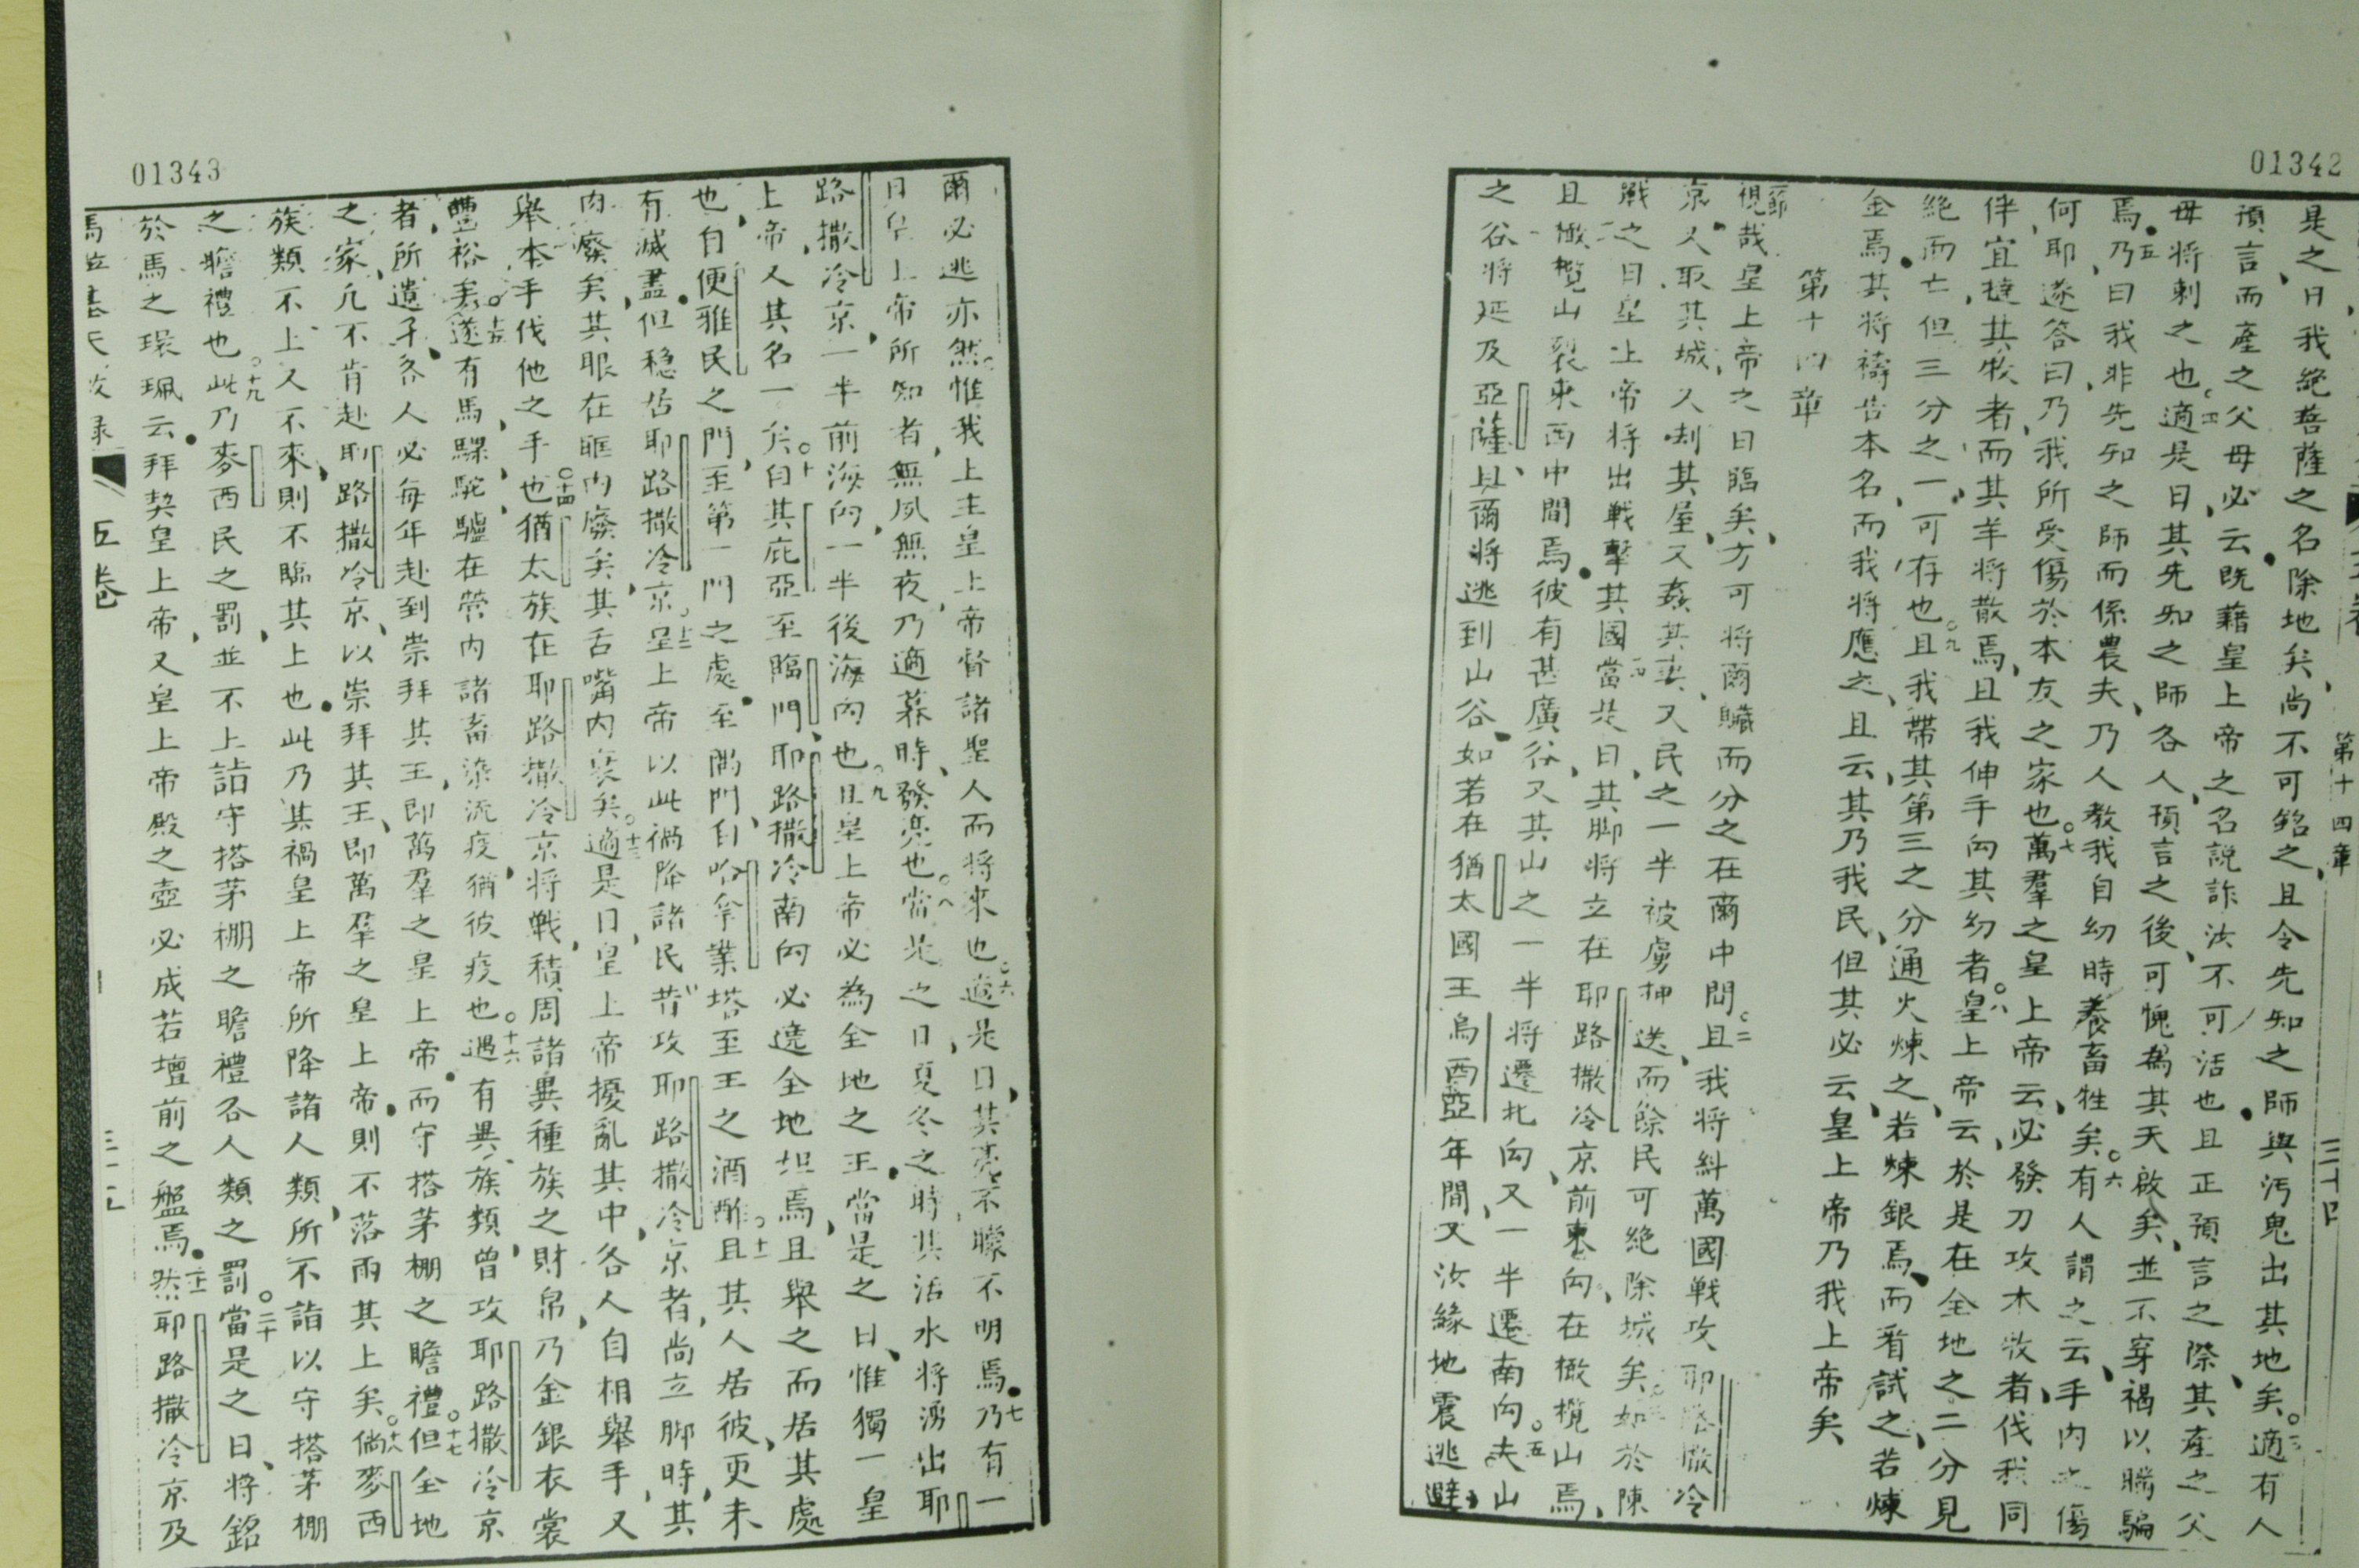 01342
第十四章
三十四
是之日我絕菩薩之名除地矣尚不可銘之且令先知之師與汚鬼出其地矣○三適有人
預言而產之父母必云既藉皇上帝之名說詐汝不可活也且正預言之際其產之父
母將刺之也○四適是日其先知之師各人預言之後可愧為其天啟矣並不穿褐以瞞騙
焉五乃曰我非先知之師而係農夫乃人教我自幼時養畜牲矣○六有人謂之云手內之傷
何耶遂答曰乃我所受傷於本友之家也○七萬羣之皇上帝云必發刀攻木牧者伐我同
伴宜撻其牧者而其羊將散焉且我伸手向其幼者○八皇上帝云於是在全地之二分見
絕而亡但三分之一可存也○九且我帶其第三之分通火煉之若煉銀焉而看試之若煉
金焉其將禱告本名而我將應之且云其乃我民但其必云皇上帝乃我上帝矣
第十四章
一節視哉皇上帝之日臨矣方可將爾贓而分之在爾中間○二且我將糾萬國戰攻耶路撒冷
京又取其城又刦其屋又姦其妻又民之一半被虜押送而餘民可絕除城矣○三如於陳
戰之日皇上帝將出戰擊其國○四當是日其腳將立在耶路撒冷京前東向在橄欖山焉
且橄欖山裂東西中間焉彼有甚廣谷又其山之一半將遷北向又一半遷南向○五夫山
之谷將延及亞薩且爾將逃到山谷如若在猶太國王烏西亞年間又汝緣地震逃避
01343
爾必逃亦然惟我上主皇上帝督諸聖人而將來也○六適是日其亮不矇不明焉七乃有一
日皇上帝所知者無夙無夜乃適暮時發亮也○八當是之日夏冬之時其活水將湧出耶
路撒冷京一半前海向一半後海向也○九且皇上帝必為全地之王當是之日惟獨一皇
上帝又其名一矣○十自其庇亞至臨門耶路撒冷南向必遶全地坦焉且舉之而居其處
也自便雅民之門至第一門之處至隅門自哈拿業塔至王之酒酢○十一且其人居彼更未
有滅盡但穩居耶路撒冷京○十二皇上帝以此禍降諸民昔攻耶路撒冷京者尚立腳時其
肉廢矣其眼在眶內廢矣其舌嘴內衰矣○十三適是日皇上帝擾亂其中各人自相舉手又
舉本手伐他之手也○十四猶太族在耶路撒冷京將戰積周諸異種族之財帛乃金銀衣裳
豐裕矣○十五遂有馬騾駝驢在營內諸畜染流疫猶彼疫也○十六遇有異族類曾攻耶路撒冷京
者所遺孑各人必每年赴到崇拜其王即萬羣之皇上帝而守搭茅棚之瞻禮○十七但全地
之家凡不肯赴耶路撒冷京以崇拜其王即萬羣之皇上帝則不落雨其上矣○十八倘麥西
族類不上又不來則不臨其上也此乃其禍皇上帝所降諸人類所不詣以守搭茅棚
之瞻禮也○十九此乃麥西民之罰並不上詣守搭茅棚之瞻禮各人類之罰○二十當是之日將銘
於馬之環珮云拜契皇上帝又皇上帝殿之壺必成若壇前之盤焉二十一然耶路撒冷京及
五卷
三十五